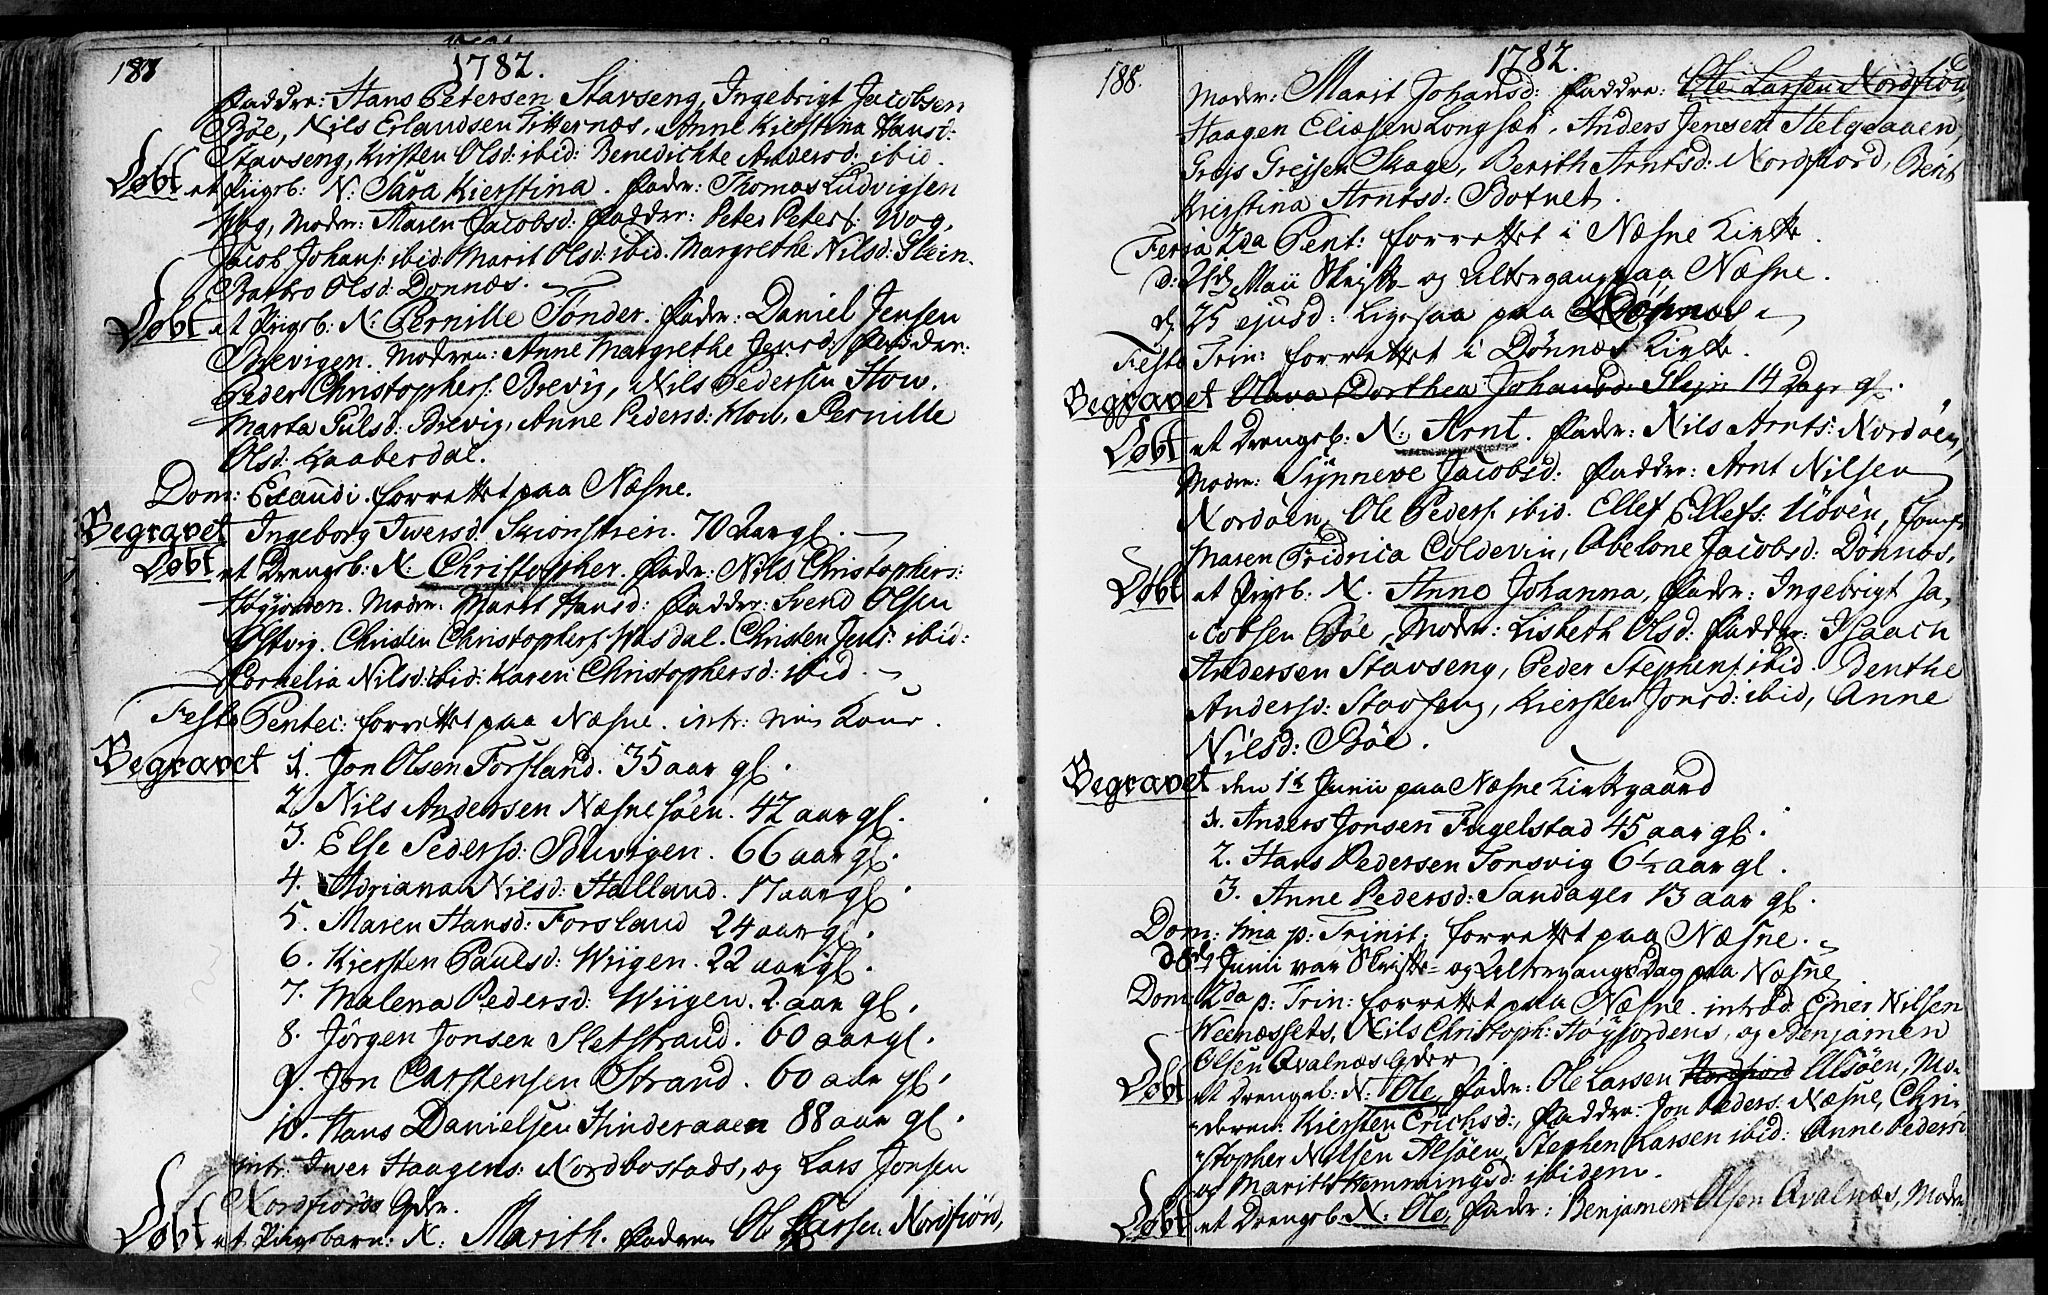 187
1782.
Faddre: Hans Petersen Stavseng, Ingebrigt Jacobsen
Böe, Nils Erlandsen Titternæs, Anne Kierstina Hansd:
Stavseng, Kirsten Olsd: ibid: Benedichte Andersd: ibid.
Döbt et Piigeb: N: Sara Kierstina. Fader: Thomas Ludvigsen
Wog, Moder: Maren Jacobsd: Faddre: Peter Peters: Wog,
Jacob Johans: ibid. Marit Olsd: ibid. Margrethe Nilsd: Slein.
Barbro Olsd: Dönnæs.
Döbt et Piigeb: N: Pernille Tønder. Fader: Daniel Jensen
Brevigen. Moderen: Anne Margrethe Jensd: Fadder:
Peder Christophers: Brevig, Nils Pedersen Stow.
Marta Pulsd: Brevig, Anne Pedersd: Pernille
Olsd: Kaaberdal.
Dom: Exaudi. forrettet paa Næsne.
Begravet Ingeborg Iwersd: 70 aar gl.
Döbt et Drengeb: N: Christopher. Fader: Nils Christophers:
Moder: Marit Hansd: Faddre: Svend Olsen
Christen Christophers: Wasdal. Christen Jens: ibid:
Cornelia Nilsd: ibid: Karen Christophersd: ibid.
Festo Pentec: forrettet paa Næsne. intr: min Kone.
Begravet 1. Jon Olsen Forsland. 35 aar gl.
2. Nils Andersen Næsnesöen. 42 aar gl.
3. Else Pedersd: Buvigen. 66 aar gl.
4. Adriana Nilsd: Halland. 17 aar gl.
5. Maren Hansd: Forsland 24 aar gl.
6. Kiersten Paulsd: Wiigen. 22 aar gl.
7. Malena Pedersd: Wiigen. 2 aar gl.
8. Jörgen Jonsen Sletstrand. 60 aar gl.
9. Jon Carstensen Strand. 60 aar gl.
10. Hans Danielsen Hinderaaen 88 aar gl.
intr: Iwer Haagens: Nordbostads, og Lars Jonsen
Nordfiords Qder.
Döbt et Piigebarn: N: Marith. Faderen Ole Larsen Nordfiord,
188.
1782.
Moder: Marit Johansd: Faddre: Ole Larsen Nordfiord,
Haagen Eliasen Longsæt, Anders Jensen Stelgaaen,
Greis Greisen Skage, Berith Arntsd: Nordfiord, Berit
Kierstina Arntsd: Botnet.
Feria 2da Pent: forrettet i Næsne Kirke.
d: 21de Maii Skrifte- og Altergang paa Næsne.
d. 25 ejusd: Ligesaa paa
Festo Trin: forrettet i Dönnæs Kirke.
Begravet Olava Dorthea Johansd: Slejn 14 Dage gl.
Döbt et Drengeb: N: Arnt. Fader: Nils Arnts: Nordöen,
Moder: Synneve Jacobsd: Faddre: Arnt Nilsen
Nordöen, Ole Peders: ibid. Ellef Ellefs: Jomfr
Maren Fridrica Coldevin, Abelone Jacobsd: Dönnæs.
Döbt et Pigeb: N. Anne Johanna, Fader: Ingebrigt Ja-
cobsen Böe, Moder: Lisbeth Olsd: Faddre: Isaach
Andersen Stavseng, Peder Stephens: ibid. Denthe
Andersd: Stavseng, Kiersten Jonsd: ibid, Anne
Nilsd: Böe.
Begravet den 1te Junii paa Næsne Kirkegaard
1. Anders Jonsen Fugelstad 45 aar gl.
2. Hans Pedersen Tonsvig 6½ aar gl.
3. Anne Pedersd: Sandager 13 aar gl.
Dom: 1ma p: Trinit: forrettet paa Næsne.
d 8de Junii var Skrifte- og Altergangsdag paa Næsne
Dom: 2da p: Trin: forrettet paa Næsne. introd: Ejner Nilsen
Weenæssets, Nils Christoph: Høgfordens, og Benjamen
Olsen Qvalnæs Qder
Döbt et Drengeb: N: Ole, Fader: Ole Larsen Nordfiord Alsöen, Mo-
deren: Kiersten Erichsd:, Faddre: Jon Peders: Næsne, Chri-
stopher Nilsen Alsöen, Stephen Larsen ibid: Anne Pedersd
og Marith Hemmingsd: ibidem.
Döbt et Drengeb: N: Ole, Fader: Benjamen Olsen Qvalnæs, Moder